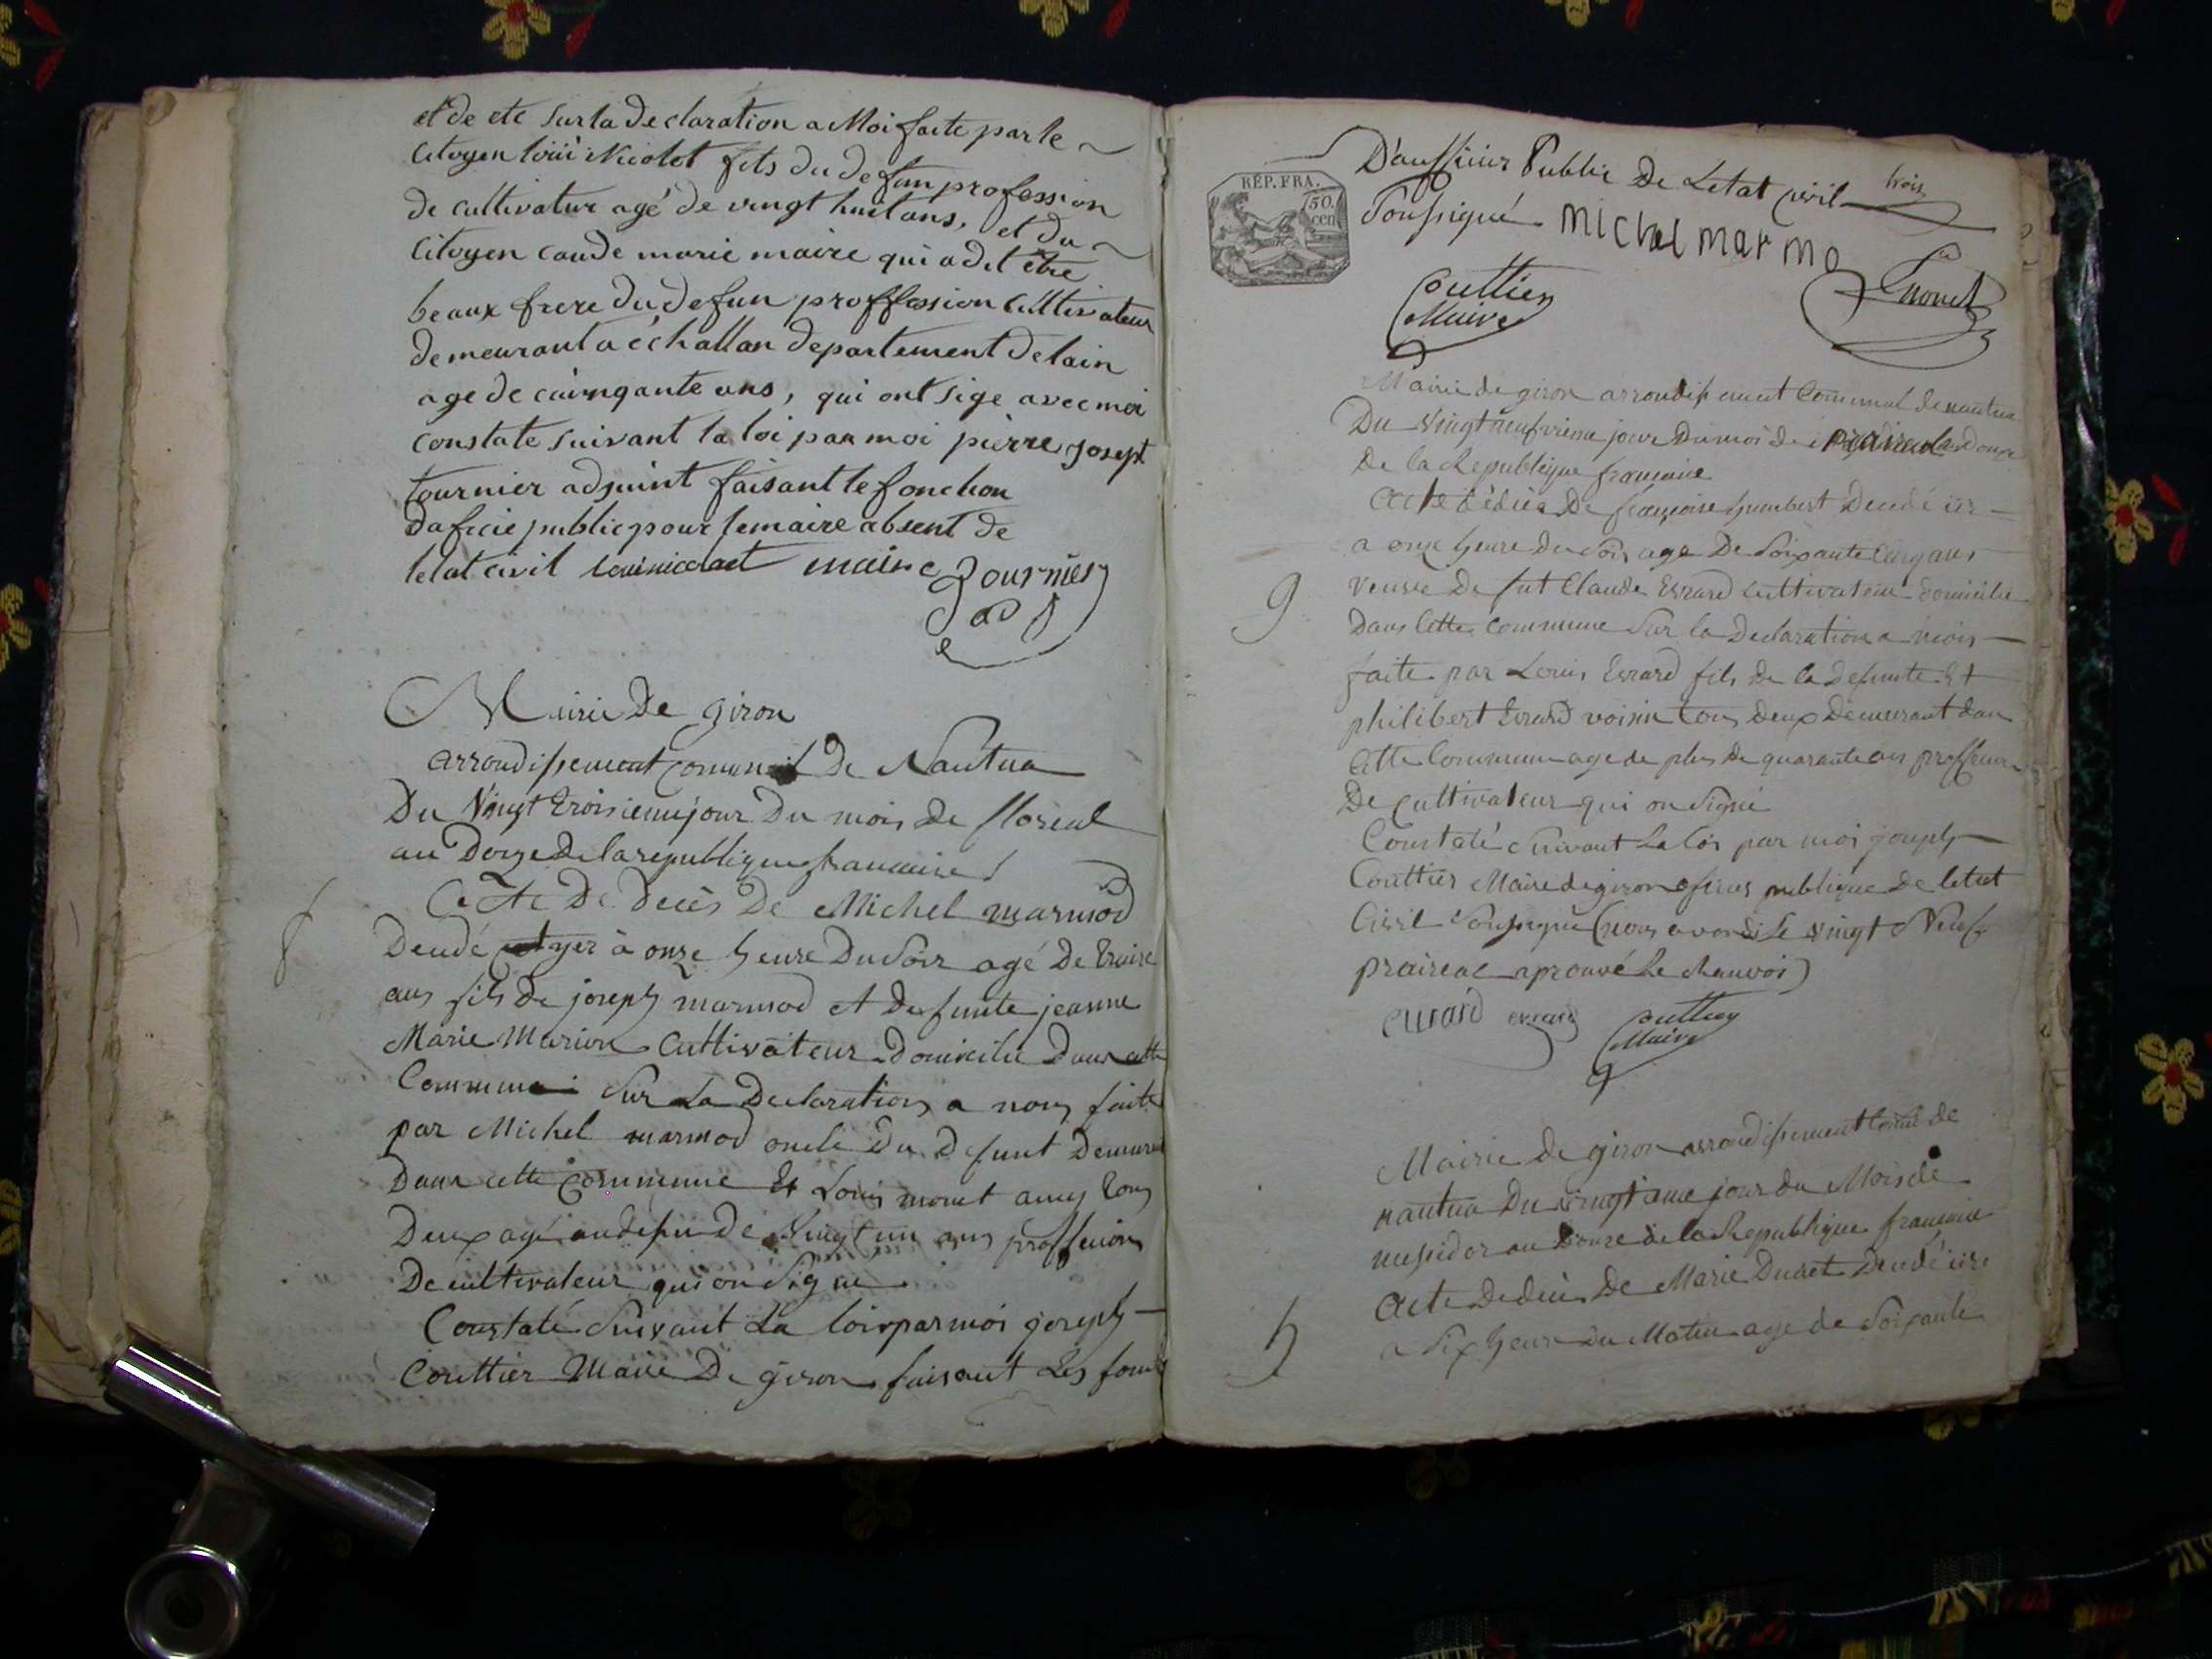 et de ete sur la declaration a Moi faite par le
Citoyen loüi Nicolet fits du defun profession
de cultivatur agé de vingt huit ans, et du
Citoyen caude marie maire qui a dit être
beaux frere du defun proffession Cultivateur
demeurant a échallan departement de lain
age de cainqante ans, qui ont sige avec moi
constate suivant la loi par moi pierre josept
tournier adjoint faisant le fonction
daficie public pour lemaire absent de
letat civil maire Tournier
adj
Mairie de giron
arrondissement comunal de Nantua
Du Vingt troisieme jour Du mois de floreal
an Doze de la republique francaise
8
Acte De Deces De Michel marmod
Decedé yer à onze heure Du Soir agé De traize
ans fils de joseph marmod et defunte jeanne
Marie Marion Cultivateur Domicilié Dans cette
Commune Sur La Declaration a nous faite
par Michel marmod oncle Du Defunt Demeurant
Dans cette Commune Et Louis monet amy tous
Deux agé audesu de Vingt un ans proffession
De cultivateur qui on Signe
Constaté Suivant La loix par moi joseph
Couttier Maire De giron faisant Les fon
trois
D'aufficier Public De Letat Civil
Soussigné Michel marmo
REP. FRA.
50.
cen
Couttier
Maire
Monet
Mairie de giron arrondissement Communal de nantua
Du Vingt neufvieme jour Du moi de prairial an douze
De la Republique francaise
Acte dédéces De francoise humbert Decedé ier
a onze heure du Soir age De Soixante Cinq ans
9
veusve De fut Claude Evrard cultivateur domicilié
Dans Cette commune Sur la Declaration a mois
faite par Louis Evrard fils de la defunte Et
philibert Evrard voisin tous deux demeurant dan
Cette Commune age de plus de quarante ans proffession
De cultivateur qui on Signé
Constaté Suivant La loi par moi joseph
Couttier Maire de giron oficier publique de letat
Civil Soussigné (nous avon di le vingt Neuf
praireal aprouvé Le Ranvois)
Evrard evrard Couttier
Maire
Mairie de giron arrondissement Comal de
nantua Du vingtieme jour du Mois de
messidor an Douze de la Republique francaise
Acte De deces De Marie Ducret Decedé ier
a Six heure du Matin age de Soixante